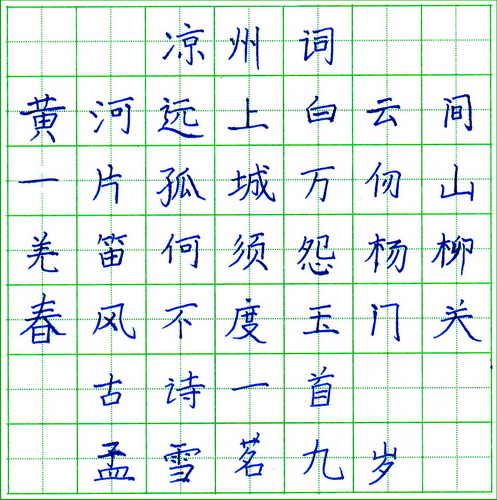 凉州词
黄河远上白云间
一片孤城万仞山
羌笛何须怨杨柳
春风不度玉门关
古诗一首
孟雪茗九岁